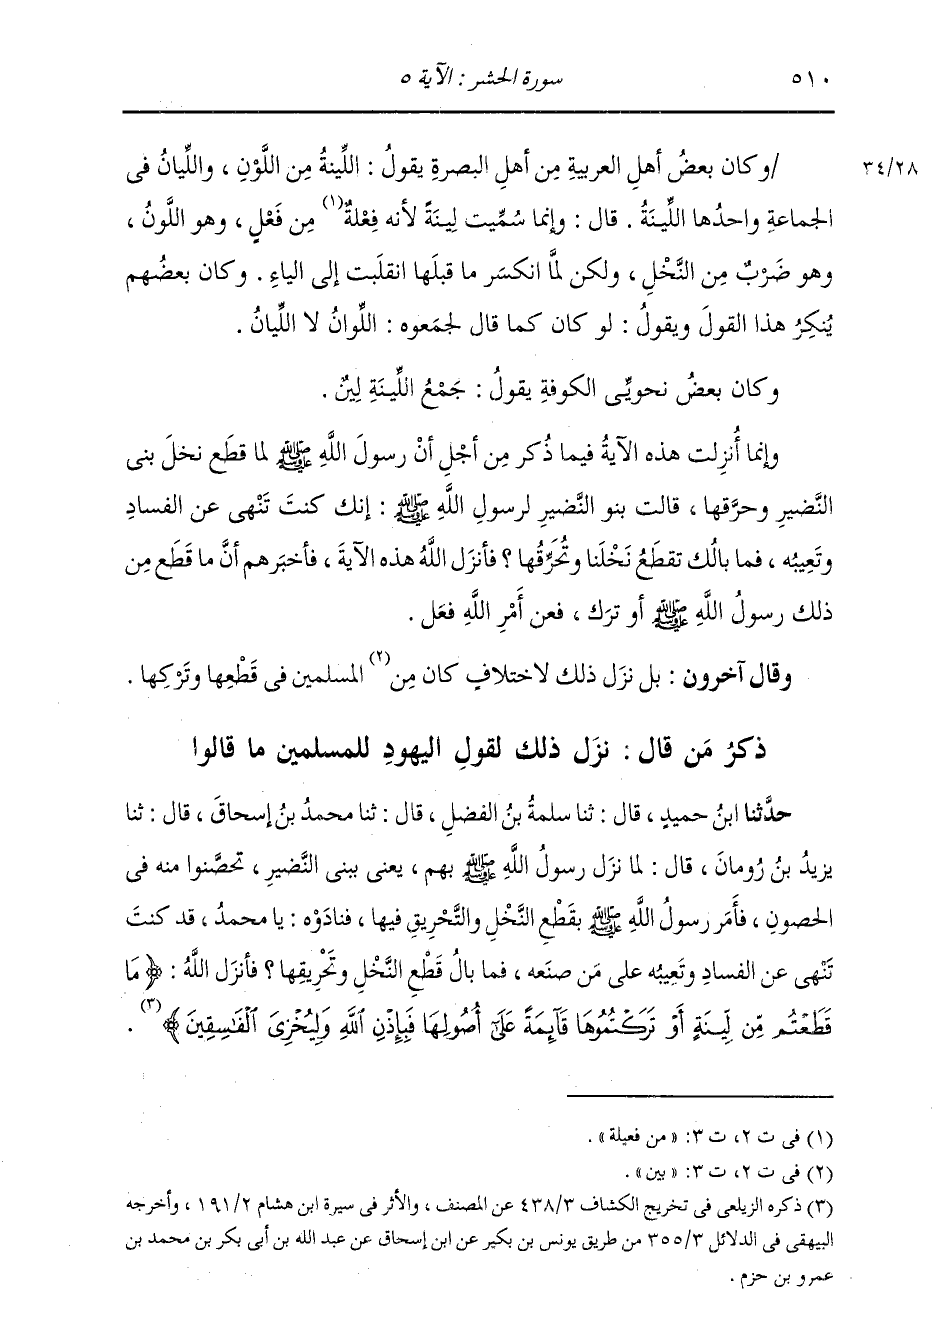 ٥١٠
سورة الحشر : الآية ٥
٣٤/٢٨
/وكان بعضُ أهلِ العربيةِ مِن أهلِ البصرةِ يقولُ : اللِّينةُ مِن اللَّوْنِ ، واللِّيانُ فى
الجماعةِ واحدُها اللِّينَةُ . قال : وإنما سُمِّيت لِينَةً لأنه فِعْلةٌ(١) مِن فَعْلٍ ، وهو اللَّونُ ،
وهو ضَرْبٌ مِن النَّخْلِ ، ولكن لمَّا انكسَر ما قبلَها انقلَبت إلى الياءِ . وكان بعضُهم
يُنكِرُ هذا القولَ ويقولُ : لو كان كما قال لجمَعوه : اللِّوانُ لا اللِّيانُ .
وكان بعضُ نحويِّى الكوفةِ يقولُ : جَمْعُ اللِّينَةِ لِينٌ .
وإنما أُنزِلت هذه الآيةُ فيما ذُكر مِن أجْلِ أنْ رسولَ اللَّهِ ﷺ لما قطَع نخلَ بنى
النَّضيرِ وحرَّقها ، قالت بنو النَّضيرِ لرسولِ اللَّهِ ﷺ : إنك كنتَ تَنْهى عن الفسادِ
وتَعِيبُه ، فما بالُك تقطَعُ نَخْلَنا وتُحَرِّقُها ؟ فأنزَل اللَّهُ هذه الآيةَ ، فأخبَرهم أنَّ ما قَطَع مِن
ذلك رسولُ اللَّهِ ﷺ أو ترَك ، فعن أَمْرِ اللَّهِ فعَل .
وقال آخرون : بل نزَل ذلك لاختلافٍ كان مِن(٢) المسلمين فى قَطْعِها وتَرْكِها .
ذكرُ مَن قال : نزَل ذلك لقولِ اليهودِ للمسلمين ما قالوا
حدَّثنا ابنُ حميدٍ ، قال : ثنا سلمةُ بنُ الفضلِ ، قال : ثنا محمدُ بنُ إسحاقَ ، قال : ثنا
يزيدُ بنُ رُومانَ ، قال : لما نزَل رسولُ اللَّهِ ﷺ بهم ، يعنى ببنى النَّضيرِ ، تحصَّنوا منه فى
الحصونِ ، فأَمَر رسولُ اللَّهِ ﷺ بقَطْعِ النَّخْلِ والتَّحْريقِ فيها ، فنادَوْه : يا محمدُ ، قد كنتَ
تَنْهى عن الفسادِ وتَعيبُه على مَن صنَعه ، فما بالُ قَطْعِ النَّخْلِ وتَحْرِيقِها ؟ فأنزَل اللَّهُ : ﴿ مَا
قَطَعْتُم مِّن لِّينَةٍ أَوْ تَرَكْتُمُوهَا قَآئِمَةً عَلَىٰٓ أُصُولِهَا فَبِإِذْنِ ٱللَّهِ وَلِيُخْزِىَ ٱلْفَٰسِقِينَ ﴾(٣) .
(١) فى ت ٢، ت ٣: « من فعيلة » .
(٢) فى ت ٢، ت ٣: « بين » .
(٣) ذكره الزيلعى فى تخريج الكشاف ٤٣٨/٣ عن المصنف ، والأثر فى سيرة ابن هشام ١٩١/٢ ، وأخرجه
البيهقى فى الدلائل ٣٥٥/٣ من طريق يونس بن بكير عن ابن إسحاق عن عبد الله بن أبى بكر بن محمد بن
عمرو بن حزم .